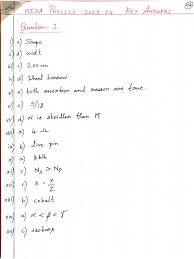 KISA PHYSICS - 2023-24 KEY ANSWERS
Question-1
i) a) Shape
ii) d) watt
iii) c) 200cm
iv) d) Wheel barrow
v) a) both assertion and reason are true.
vi) c) 5/18
vii) d) N is shriller than M
viii) a) 4 Ω
ix) b) live pin
x) a) kWh
xi) c) Ns > Np
xii) c) X = Y/Z
xiii) b) cobalt
xiv) a) α < β < γ
xv) c) isobars